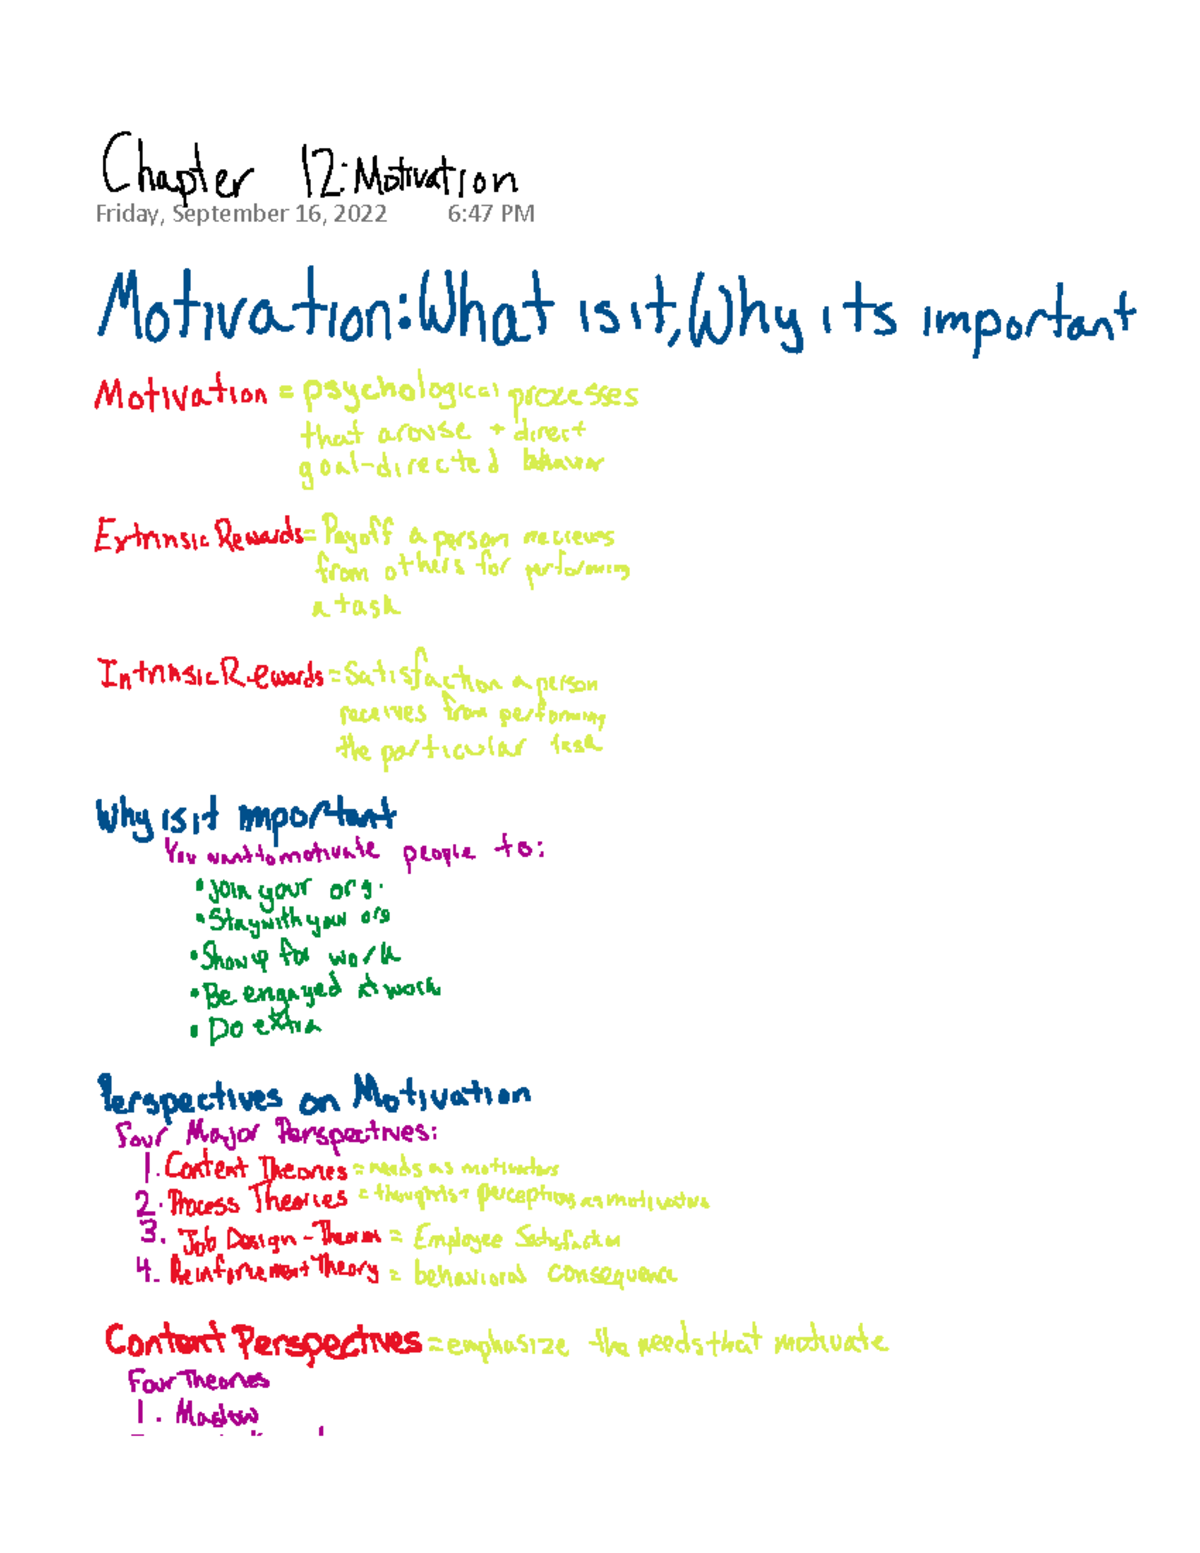 Chapter 12: Motivation
Friday, September 16, 2022 6:47 PM
Motivation: What is it, Why its important
Motivation = psychological processes
that arouse + direct
goal-directed behavior
Extrinsic Rewards = Payoff a person recieves
from others for performing
a task
Intrinsic Rewards = Satisfaction a person
receives from performing
the particular task
Why is it important
You want to motivate people to:
• Join your org.
• Stay with your org
• Show up for work
• Be engaged at work
• Do extra
Perspectives on Motivation
Four Major Perspectives:
1. Content Theories = needs as motivators
2. Process Theories = thoughts + perceptions as motivators
3. Job Design - Theories = Employee Satisfaction
4. Reinforcement Theory = behavioral consequence
Content Perspectives = emphasize the needs that motivate
Four Theories
1. Maslow